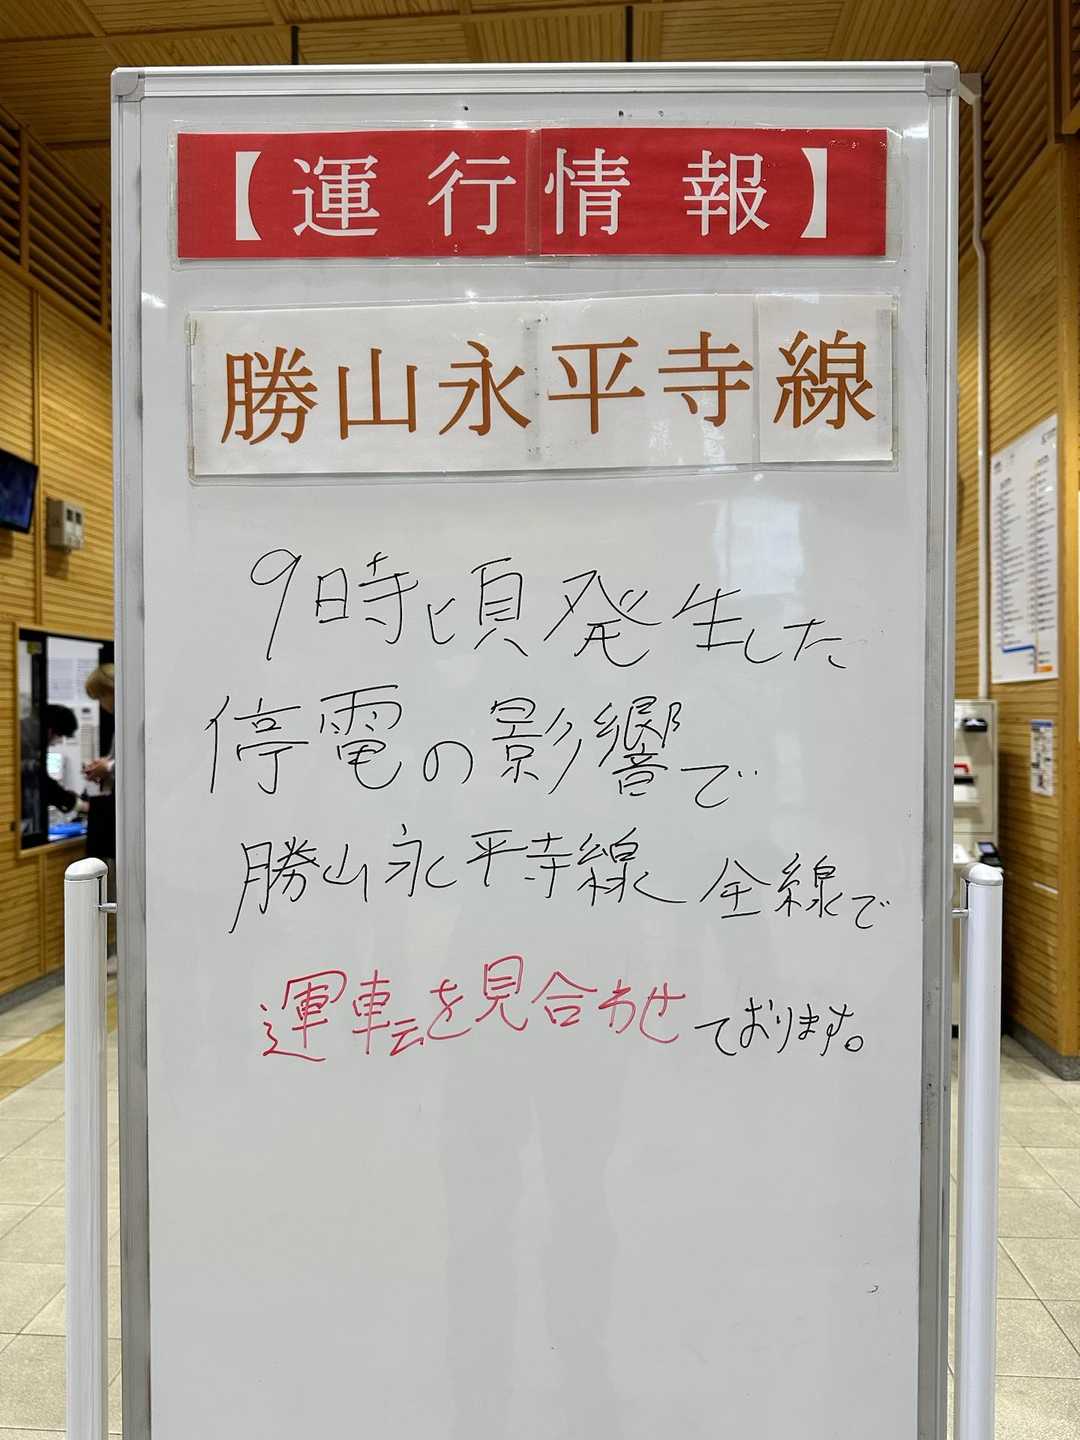 【運行情報】
勝山永平寺線
9時頃発生した
停電の影響で
勝山永平寺線 全線で
運転を見合わせております。